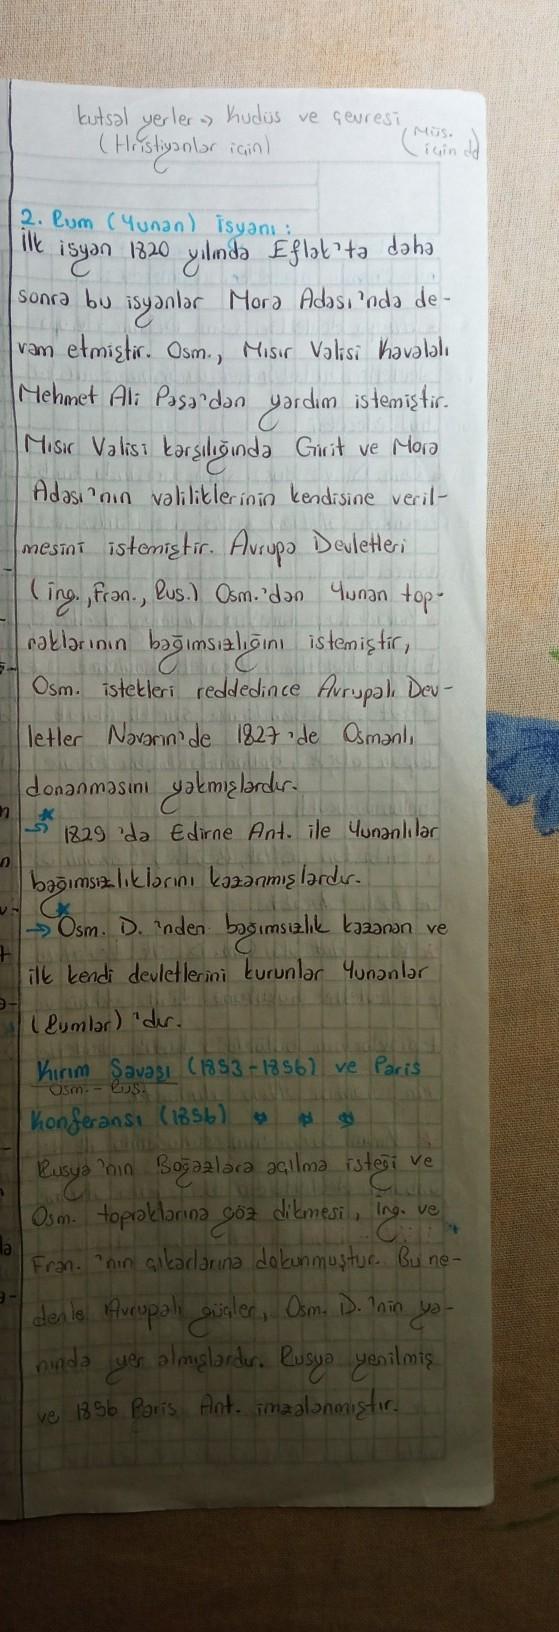 kutsal yerler → Kudüs ve çevresi
(Hristiyanlar için) (Müs. için dd
2. Rum (Yunan) İsyanı:
İlk isyan 1820 yılında Eflak'ta daha
sonra bu isyanlar Mora Adası'nda de-
vam etmiştir. Osm., Mısır Valisi Kavalalı
Mehmet Ali Paşa'dan yardım istemiştir.
Mısır Valisi karşılığında Girit ve Mora
Adası'nın valiliklerinin kendisine veril-
mesini istemiştir. Avrupa Devletleri
(ing., Fran., Rus.) Osm.'dan Yunan top-
raklarının bağımsızlığını istemiştir,
Osm. istekleri reddedince Avrupalı Dev-
letler Navarin'de 1827'de Osmanlı
donanmasını yakmışlardır.
→ 1829'da Edirne Ant. ile Yunanlılar
bağımsızlıklarını kazanmışlardır.
→ Osm. D.'nden bağımsızlık kazanan ve
ilk kendi devletlerini kurunlar Yunanlar
(Rumlar)'dır.
Kırım Savaşı (1853-1856) ve Paris
Osm. - Rus.
Konferansı (1856)
Rusya'nın Boğazlara açılma isteği ve
Osm. topraklarına göz dikmesi, İng. ve
Fran.'nın çıkarlarına dokunmuştur. Bu ne-
denle Avrupalı güçler, Osm. D.'nin ya-
nında yer almışlardır. Rusya yenilmiş
ve 1856 Paris Ant. imzalanmıştır.